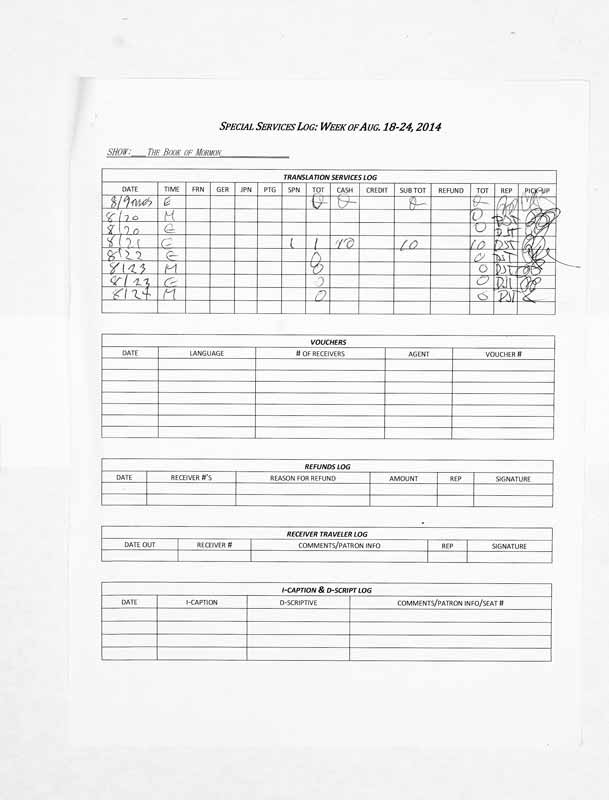 SPECIAL SERVICES LOG: WEEK OF AUG. 18-24, 2014
SHOW: THE BOOK OF MORMON
TRANSLATION SERVICES LOG
DATE TIME FRN GER JPN PTG SPN TOT CASH CREDIT SUB TOT REFUND TOT REP PICK-UP
E 0 0 0 0
8/20 M 0 DST
8/20 E 0 DST
8/21 E 1 1 10 10 10 DST
8/22 E 0 0 DST
8/23 M 0 0 DST
8/23 E 0 0 DST
8/24 M 0 0 DST
VOUCHERS
DATE LANGUAGE # OF RECEIVERS AGENT VOUCHER #
REFUNDS LOG
DATE RECEIVER #'S REASON FOR REFUND AMOUNT REP SIGNATURE
RECEIVER TRAVELER LOG
DATE OUT RECEIVER # COMMENTS/PATRON INFO REP SIGNATURE
I-CAPTION & D-SCRIPT LOG
DATE I-CAPTION D-SCRIPTIVE COMMENTS/PATRON INFO/SEAT #